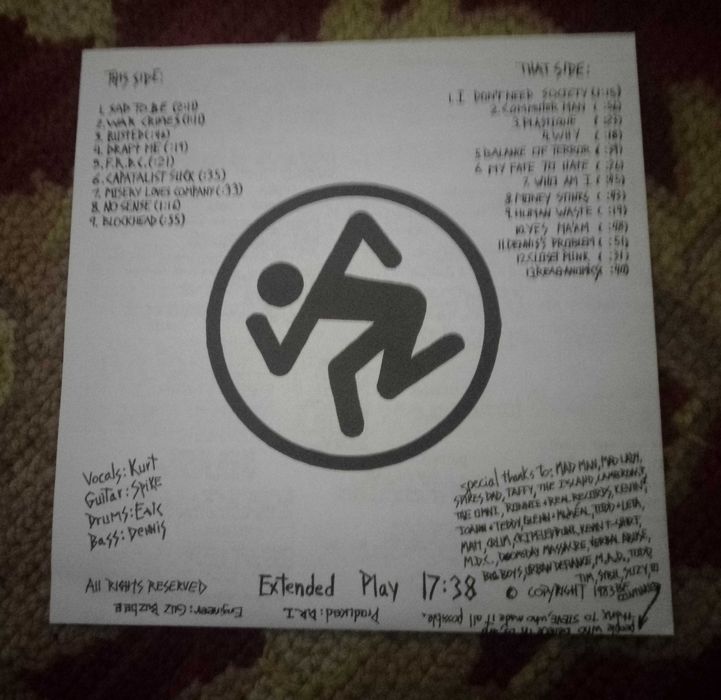 THIS SIDE:
1. SAD TO BE (2:11)
2. WAR CRIMES (1:11)
3. BUSTED (:42)
4. DRAFT ME (:19)
5. F.R.D.C. (:21)
6. CAPATALIST SUCK (:35)
7. MISERY LOVES COMPANY (:33)
8. NO SENSE (1:16)
9. BLOCKHEAD (:55)
THAT SIDE:
1. I DON'T NEED SOCIETY (1:15)
2. COMMUTER MAN
3. PLASTIQUE
4. WHY ( :18)
5. BALANCE OF TERROR
6. MY FATE TO HATE ( :26)
7. WHO AM I ( :45)
8. MONEY STINKS ( :43)
9. HUMAN WASTE ( :19)
10. YES MA'AM ( :48)
11. DENNIS'S PROBLEM ( :51)
12. CLOSET PUNK ( :31)
13. REAGANOMICS :40)
Vocals: Kurt
Guitar: Spike
Drums: Eric
Bass: Dennis
special thanks to: MAD MAN, MAD LADY,
SPIKES DAD, TAFFY, THE ISLAND,
THE OMNI, RONNIE + REAL RECORDS, KEVIN
+ TEDDY, GLENN + TODD + LETA,
KENN T-SHIRT,
M.D.C., DOOMSDAY MASSACRE, VERBAL ABUSE,
BIG BOYS, URBAN DEFIANCE, M.A.D., TODD
TIM, SUZY,
ALL RIGHTS RESERVED
Extended Play 17:38
© COPYRIGHT 1983
CONTINUED
Engineer: Guz Buzbee
Produced: D.R.I.
people who
thanx to STEVE, who made it all possible.